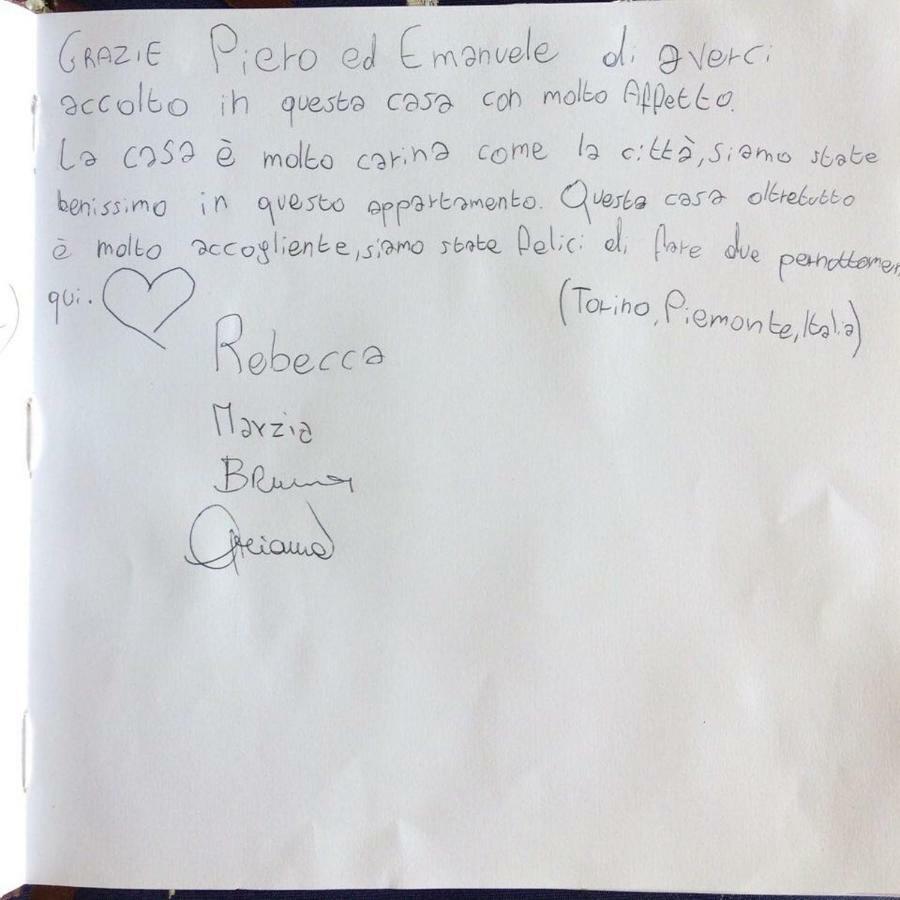 GRAZIE Piero ed Emanuele di averci
accolto in questa casa con molto Affetto.
La casa è molto carina come la città, siamo state
benissimo in questo appartamento. Questa casa oltretutto
è molto accogliente, siamo state felici di fare due pernottamen
qui.
(Torino, Piemonte, Italia)
Rebecca
Marzia
Bruna
Oreiana